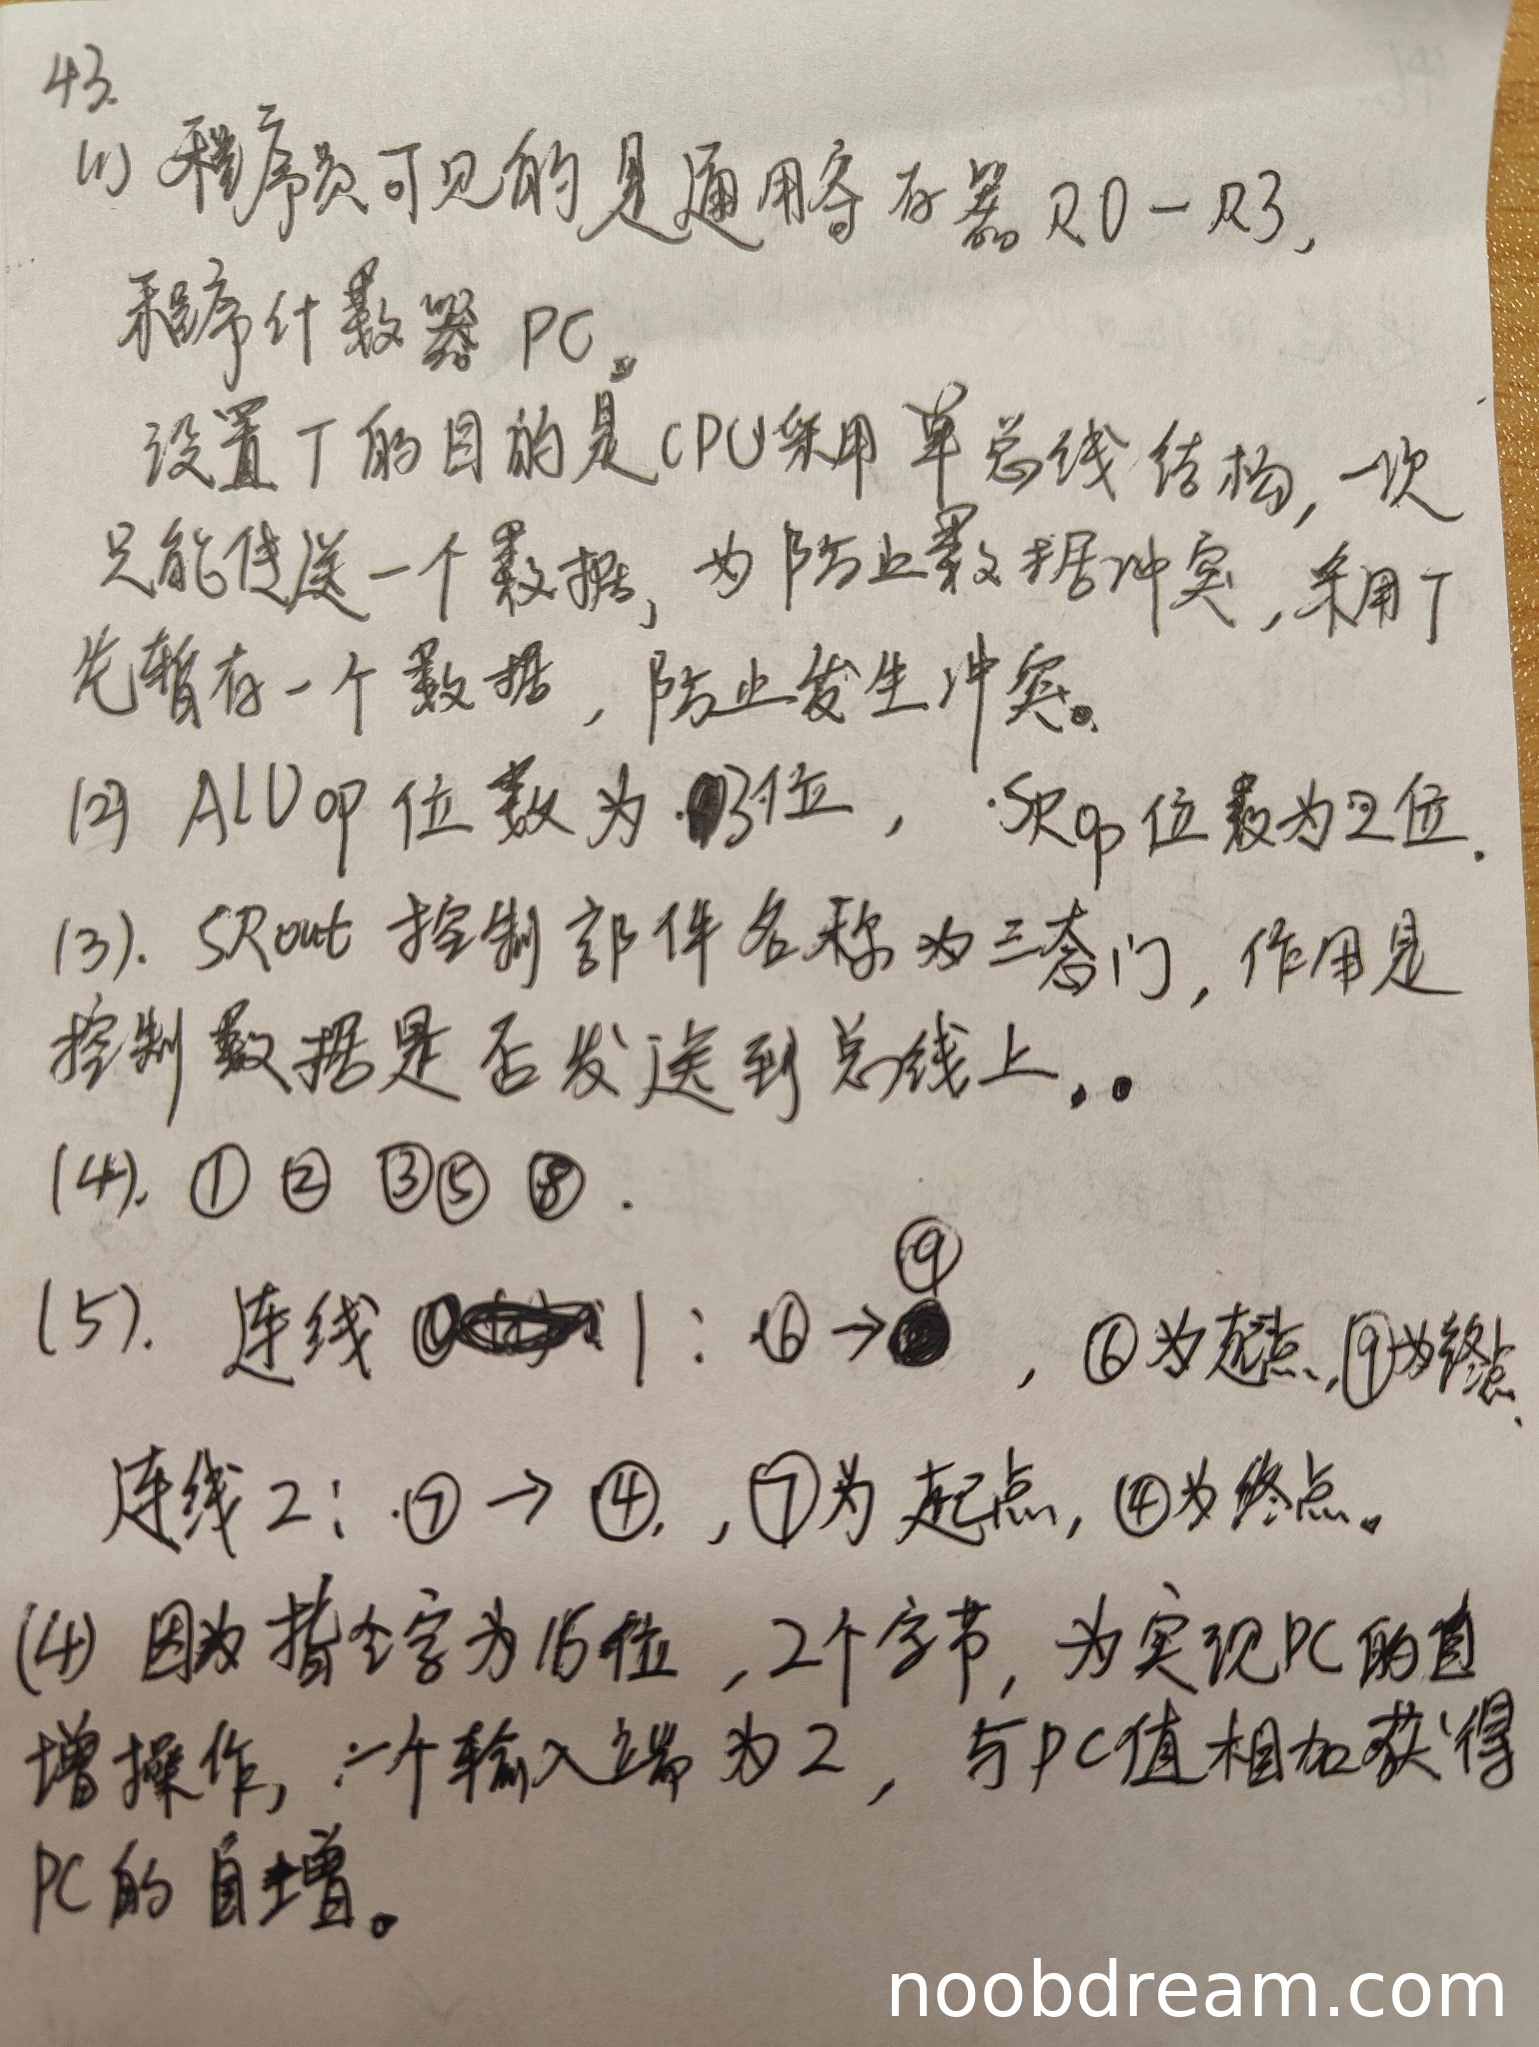 43.
(1) 程序员可见的是通用寄存器R0-R3,
程序计数器 PC。
设置T的目的是CPU采用单总线结构,一次
只能传送一个数据,为防止数据冲突,采用T
先暂存一个数据,防止发生冲突。
(2) ALUop 位数为 3位, SRop位数为2位.
(3). SRout 控制部件名称为三态门,作用是
控制数据是否发送到总线上。
(4). ① ② ③ ⑤ ⑧.
(5). 连线 1: ⑥→⑨ , ⑥为起点,⑨为终点.
连线2: ⑦→④, ⑦为起点,④为终点。
(4) 因为指令字为16位,2个字节,为实现PC的自
增操作,一个输入端为2,与PC值相加获得
PC的自增。
noobdream.com